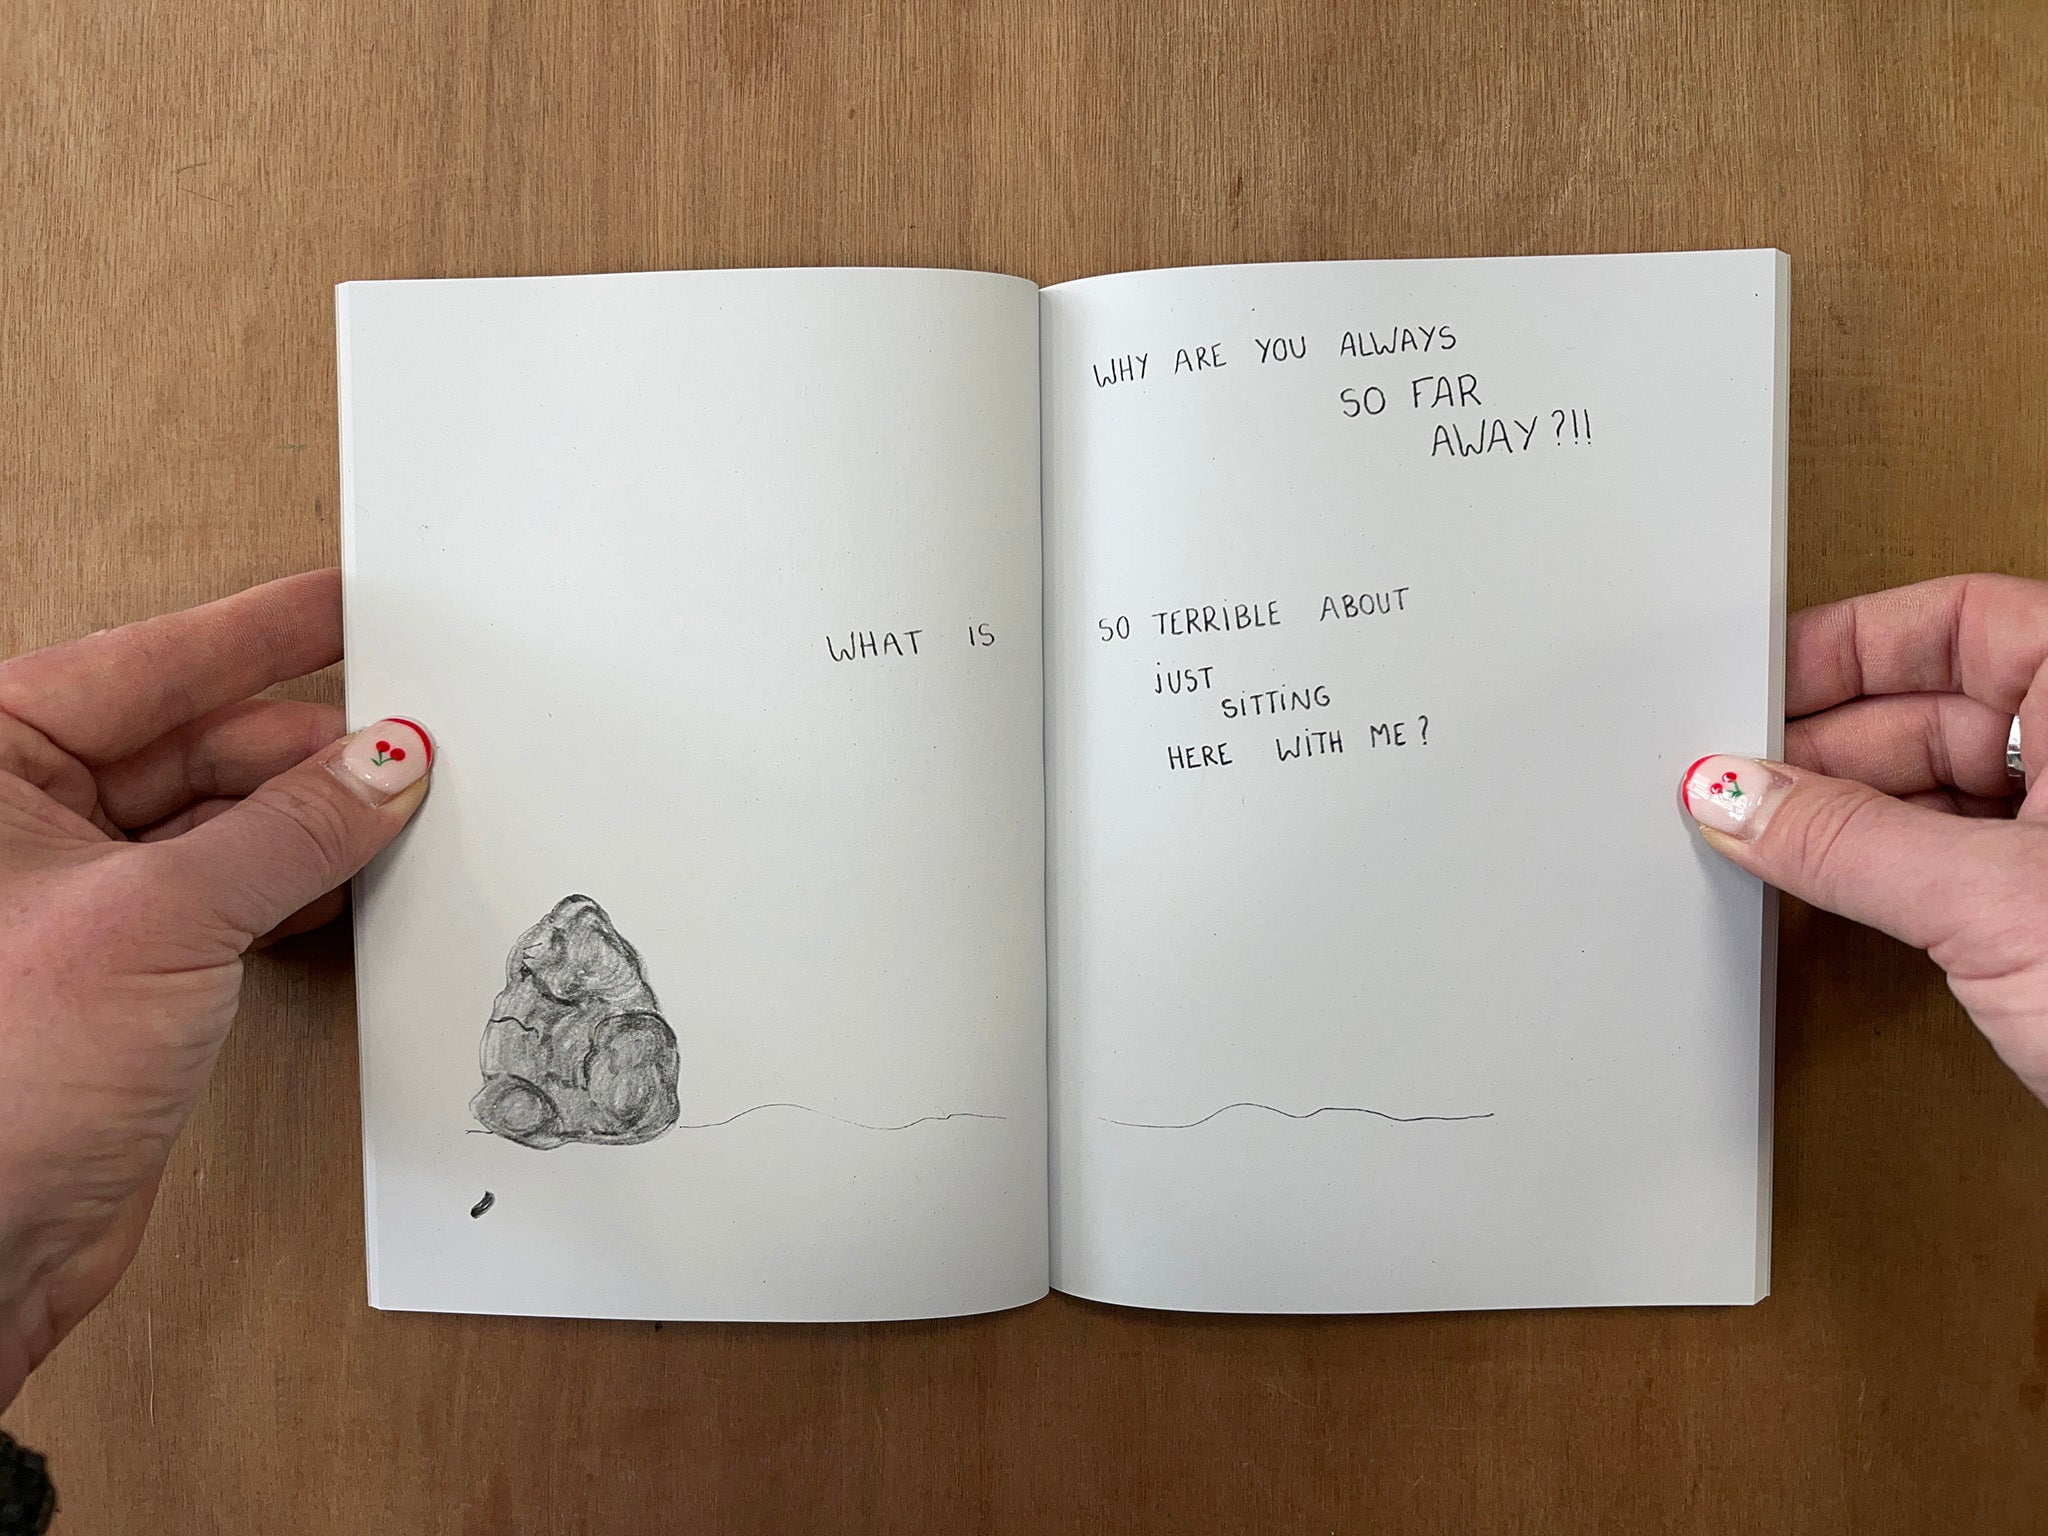 WHY ARE YOU ALWAYS
SO FAR
AWAY?!!
WHAT IS SO TERRIBLE ABOUT
jUST
SiTTiNG
HERE WiTH ME?